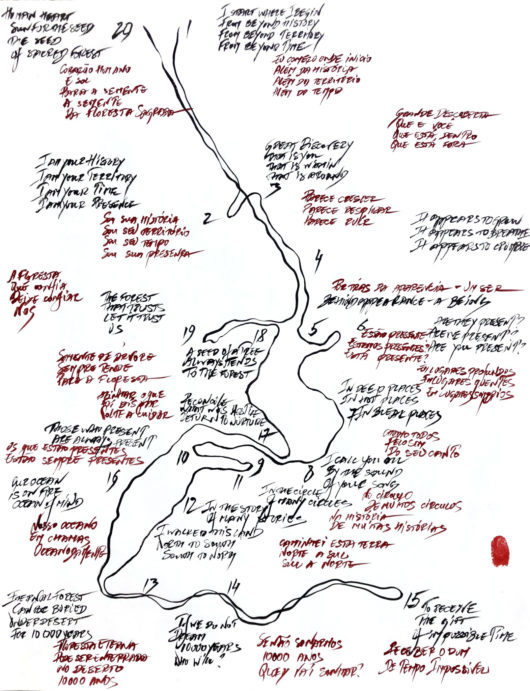 HUMAN HEART
SUN FOR THE SEED
THE SEED
of SACRED FOREST
20
CORAÇÃO HUMANO
E SOL
PARA A SEMENTE
A SEMENTE
DA FLORESTA SAGRADA
I START WHERE I BEGIN
FROM BEYOND HISTORY
FROM BEYOND TERRITORY
FROM BEYOND TIME
EU COMEÇO ONDE INICIO
ALÉM DA HISTÓRIA
ALÉM DO TERRITÓRIO
ALÉM DO TEMPO
GREAT DISCOVERY
THAT IS YOU
THAT IS WITHIN
THAT IS AROUND
3
GRANDE DESCOBERTA
QUE É VOCÊ
QUE ESTÁ DENTRO
QUE ESTÁ FORA
I am YOUR HISTORY
I am YOUR TERRITORY
I am YOUR TIME
I am YOUR PRESENCE
2
SOU SUA HISTÓRIA
SOU SEU TERRITÓRIO
SOU SEU TEMPO
SOU SUA PRESENÇA
PARECE CRESCER
PARECE
PARECE RUIR
IT APPEARS TO GROW
IT APPEARS TO BREATHE
IT APPEARS TO CRUMBLE
4
A FLORESTA
QUE CONFIA
DEIXE CONFIAR
NÓS
THE FOREST
THAT TRUSTS
LET IT TRUST
US
POR TRÁS DA APARÊNCIA - UM SER
BEHIND APPEARANCE - A BEING
19
18
5
6
ESTÃO PRESENTES?
ESTAMOS PRESENTES?
ESTÁ PRESENTE?
ARE THEY PRESENT?
ARE WE PRESENT?
ARE YOU PRESENT?
SEMENTE DE ÁRVORE
SEMPRE TENDE
PARA A FLORESTA
A SEED OF A TREE
ALWAYS TENDS
TO THE FOREST
EM LUGARES PROFUNDOS
EM LUGARES QUENTES
EM LUGARES SOMBRIOS
IN DEEP PLACES
IN HOT PLACES
IN BLEAK PLACES
O QUE
FOI
VOLTE A CUIDAR
RECONCILE
WHAT WAS HOSTILE
RETURN TO NURTURE
17
THOSE WHO PRESENT
ARE ALWAYS PRESENT
OS QUE ESTÃO PRESENTES
ESTÃO SEMPRE PRESENTES
16
10
9
11
8
I CALL YOU ALL
BY THE SOUND
OF YOUR SONG
CHAMO TODOS
PELO SOM
DO SEU CANTO
OUR OCEAN
IS ON FIRE
OCEAN of MIND
NOSSO OCEANO
EM CHAMAS
OCEANO DA MENTE
12
IN THE CIRCLE
OF MANY CIRCLES
IN THE STORY
OF MANY STORIES
I WALKED THIS LAND
NORTH TO SOUTH
SOUTH TO NORTH
NO CÍRCULO
DE MUITOS CÍRCULOS
NA HISTÓRIA
DE MUITAS HISTÓRIAS
CAMINHEI ESTA TERRA
NORTE A SUL
SUL A NORTE
13
14
15
ETERNAL FOREST
CAN BE BURIED
UNDER DESERT
FOR 10 000 YEARS
FLORESTA ETERNA
PODE SER ENTERRADO
NO DESERTO
10000 ANOS
IF WE DO NOT
DREAM
10000 YEARS
WHO WILL?
SE NÃO SONHARMOS
10000 ANOS
QUEM VAI SONHAR?
TO RECEIVE
THE GIFT
of IMPOSSIBLE TIME
RECEBER O DOM
DE TEMPO IMPOSSÍVEL